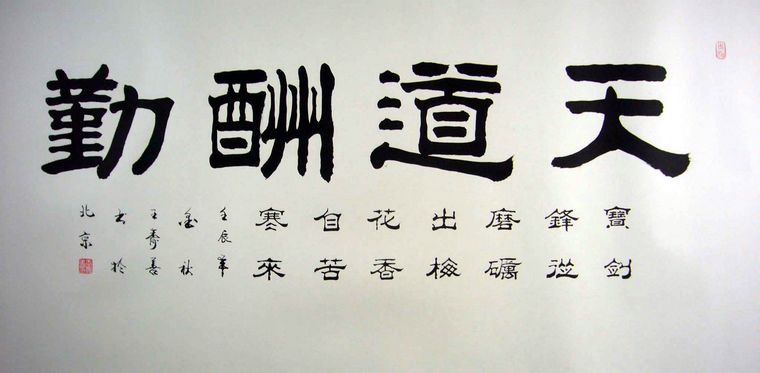 天道酬勤
寶劍
鋒從
磨礪
出梅
花香
自苦
寒來
壬辰年
金秋
王善
书於
北京